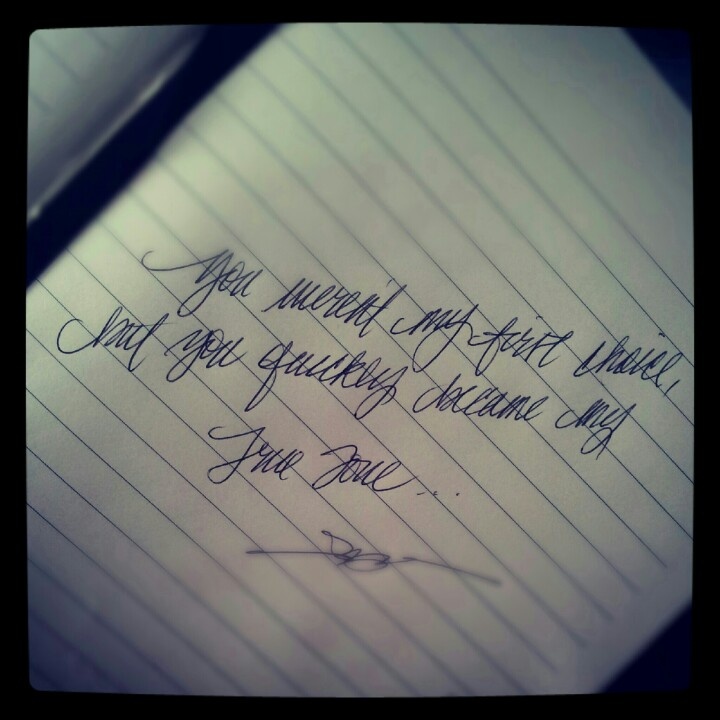 You weren't my first choice,
but you quickly became my
True Love...